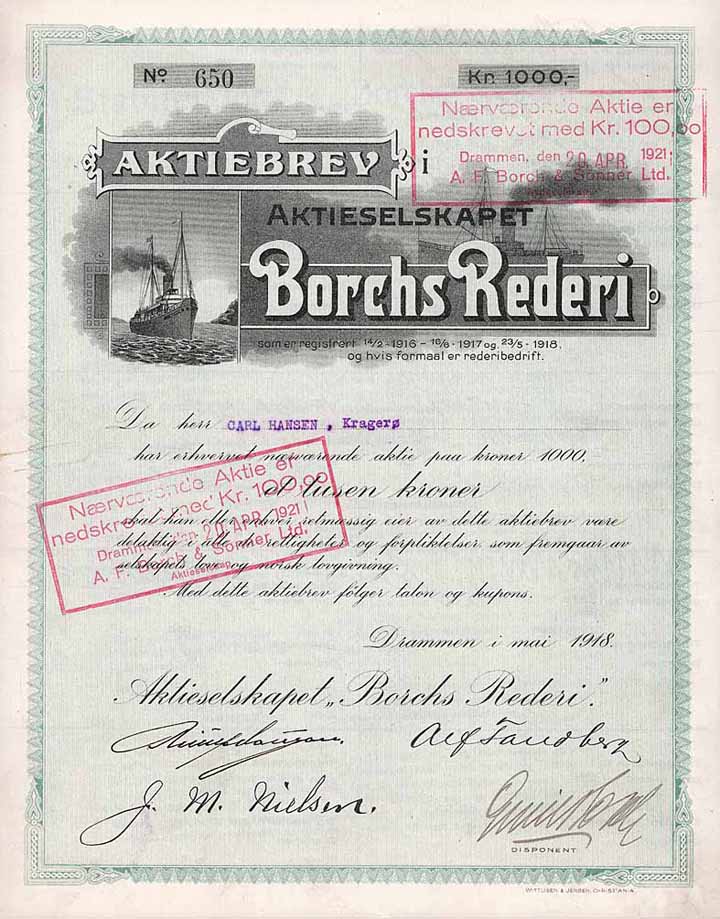 No 650
Kr. 1000,-
Nærværende Aktie er
nedskrevet med Kr. 100,00
Drammen, den 20. APR. 1921
A. F. Borch & Sønner Ltd.
Aktieselskap
AKTIEBREV i
AKTIESELSKAPET
Borchs Rederi
som er registrert 14/2-1916 - 16/6-1917 og 23/5-1918,
og hvis formaal er rederibedrift.
Da herr CARL HANSEN, Kragerø
har erhvervet nærværende aktie paa kroner 1000,-
et tusen kroner
skal han eller enhver retmæssig eier av dette aktiebrev være
delaktig i alle de rettigheter og forpliktelser som fremgaar av
selskapets love og norsk lovgivning.
Med dette aktiebrev følger talon og kupons.
Nærværende Aktie er
nedskrevet med Kr. 100,00
Drammen, den 20. APR. 1921
A. F. Borch & Sønner Ltd.
Aktieselskap
Drammen i mai 1918.
Aktieselskapet "Borchs Rederi".
Alf Sandberg
J. M. Nielsen.
DISPONENT
WITTUSEN & JENSEN, CHRISTIANIA